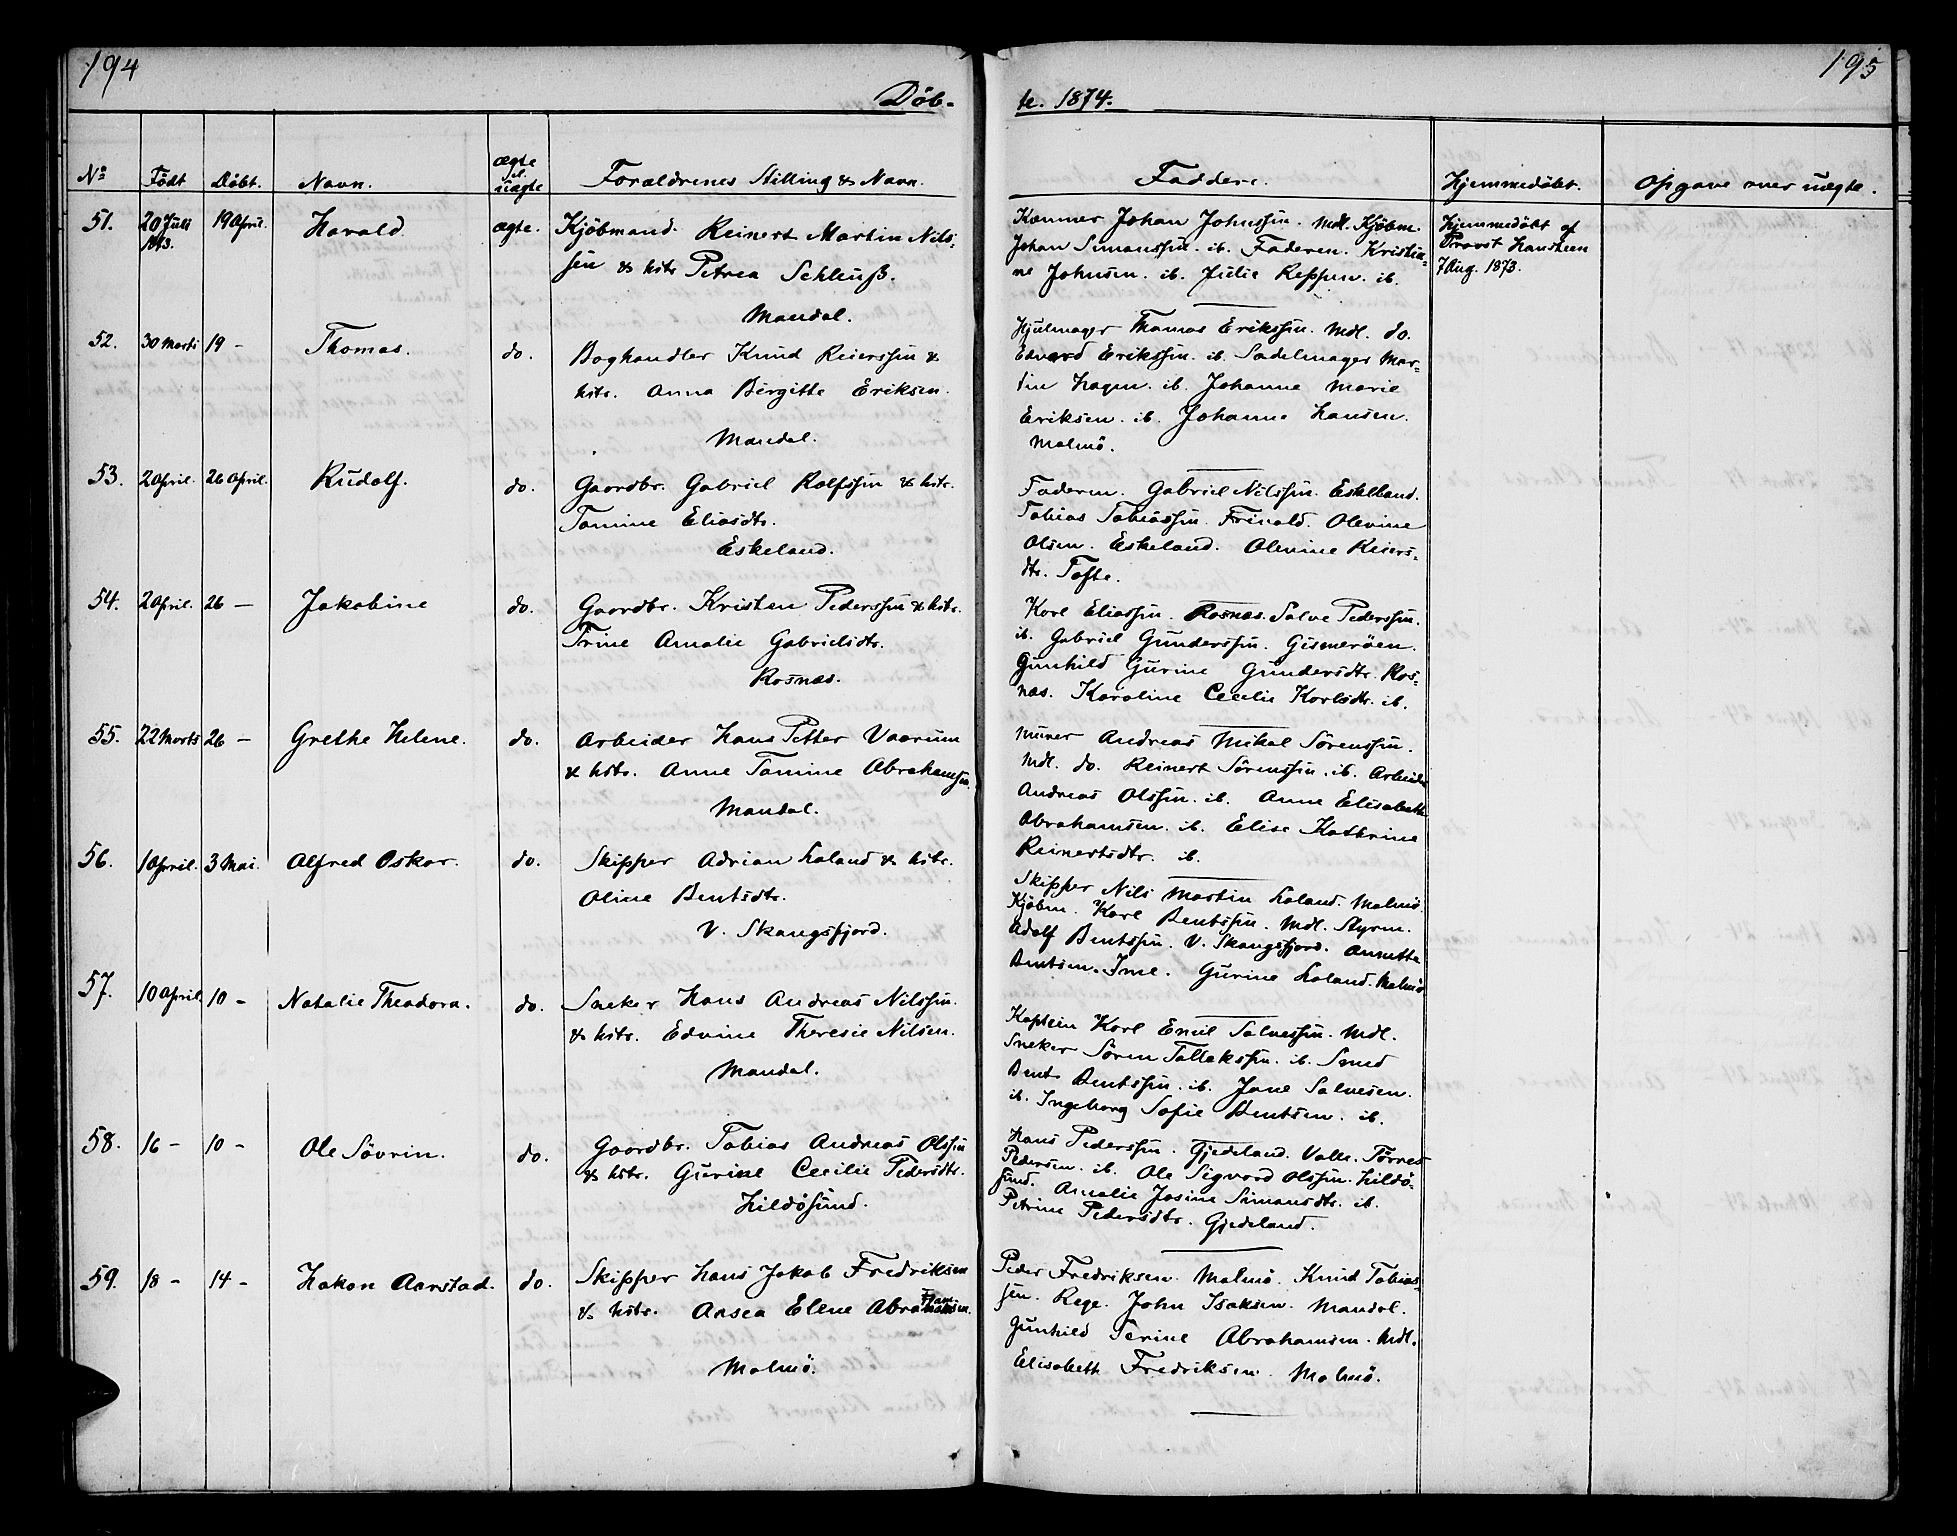 194
195
Döb-
te. 1874.
No Født Døbt. Navn. ægte el. uægte Forældrenes Stilling & Navn. Faddere. Hjemmedøbt. Opgave over uægte.
51. 20 Juli 1873. 19 April. Harald. ægte. Kjøbmand. Reinert Martin Nils-
sen & hstr Petrea Schleuß.
Mandal.
Johan Johnssen. Mdl. Kjøbm.
Johan Simonssen. ib. Faderen. Kristia-
ne Johnsen. ib. Julie Reppen. ib.
Hjemmedøbt af
Provst Hansteen
7 Aug. 1873.
52. 30 Marts 19 - Thomas. do. Boghandler Knud Reierssen &
hstr. Anna Birgitte Eriksen.
Mandal.
Hjulmager Thomas Erikssen. Mdl. do.
Edvard Erikssen. ib. Sadelmager Mar-
tin Hagen. ib. Johanne Marie
Eriksen. ib. Johanne Hansen.
Malmö.
53. 2 April. 26 April. Rudolf. do. Gaardbr. Gabriel Rolfssen & hstr.
Tomine Eliasdtr.
Eskeland.
Faderen. Gabriel Nilssen. Eskeland.
Tobias Tobiassen. Frivold. Olevine
Olsen. Eskeland. Olevine Reiers-
dtr. Tofte.
54. 2 April. 26 - Jakobine do. Gaardbr. Kristen Pederssen & hstr.
Trine Amalie Gabrielsdtr.
Rosnæs.
Karl Eliassen. Rosnæs. Salve Pederssen.
ib. Gabriel Gunderssen. Gismerøen.
Gunhild Gurine Gundersdtr. Ros-
næs. Karoline Cecilie Karlsdtr. ib.
55. 22 Marts 26 - Grethe Helene. do. Arbeider Hans Petter Vaarum
& hstr. Anne Tomine Abrahamsen.
Mandal.
Murer Andreas Mikal Sörenssen.
Mdl. do. Reinert Sörenssen. ib. Arbeider
Andreas Olssen. ib. Anne Elisabeth
Abrahamsen. ib. Elise Kathrine
Reinertsdtr. ib.
56. 1 April. 3 Mai. Alfred Oskar. do. Skipper Adrian Laland & hstr.
Oline Bentsdtr.
V. Skangsfjord.
Skipper Nils Martin Laland. Malmö.
Kjøbm. Karl Bentssen. Mdl. Styrm.
Adolf Bentssen. V. Skangsfjord. Annette
Bentsen. Ime. Gurine Laland. Malmö
57. 10 April. 10 - Natalie Theodora. do. Sneker Hans Andreas Nilssen.
& hstr. Edvine Theresie Nilsen.
Mandal.
Kaptein Karl Emil Salvessen. Mdl.
Sneker Sören Tallakssen. ib. Smed
Bent Bentssen. ib. Jane Salvesen.
ib. Ingeborg Sofie Bentsen. ib.
58. 16 - 10 - Ole Sövrin. do. Gaardbr. Tobias Andreas Olssen
& hstr. Gurine Cecilie Pedersdtr.
Hildösund.
Hans Pederssen. Gjedeland. Valle. Törres
Pedersen. ib. Ole Sigvard Olssen. Hildö-
sund. Amalie Josine Simonsdtr. ib.
Petrine Pedersdtr. Gjedeland.
59. 18 - 14 - Hakon Aarstad. do. Skipper Hans Jakob Fredriksen
& hstr. Ansea Elene Abrahamsen.
Malmö.
Peder Fredriksen. Malmö. Knud Tobias-
sen. Rege. John Isaksen. Mandal.
Gunhild Serine Abrahamsen. Mdl.
Elisabeth Fredriksen. Malmö.